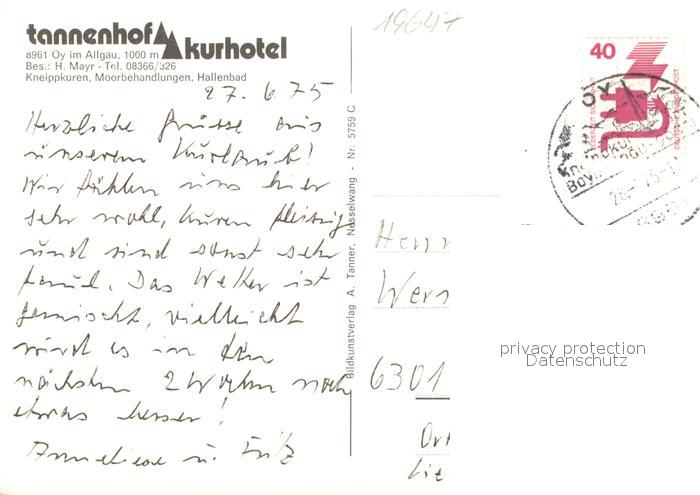 tannenhof kurhotel
8961 Oy im Allgäu, 1000 m
Bes.: H. Mayr - Tel. 08366/326
Kneippkuren, Moorbehandlungen, Hallenbad
27.6.75
Herzliche Grüsse aus
unserem Kururlaub!
Wir fühlen uns hier
sehr wohl, kuren fleissig
und sind sonst sehr
faul. Das Wetter ist
gemischt, vielleicht
wird es in den
nächsten 2 Wochen noch
etwas besser!
Anneliese u. Fritz
Bildkunstverlag A. Tanner, Nesselwang - Nr. 5759 C
19647
40
DEUTSCHE BUNDESPOST
OY
Herrn
Wern
6301
privacy protection
Datenschutz